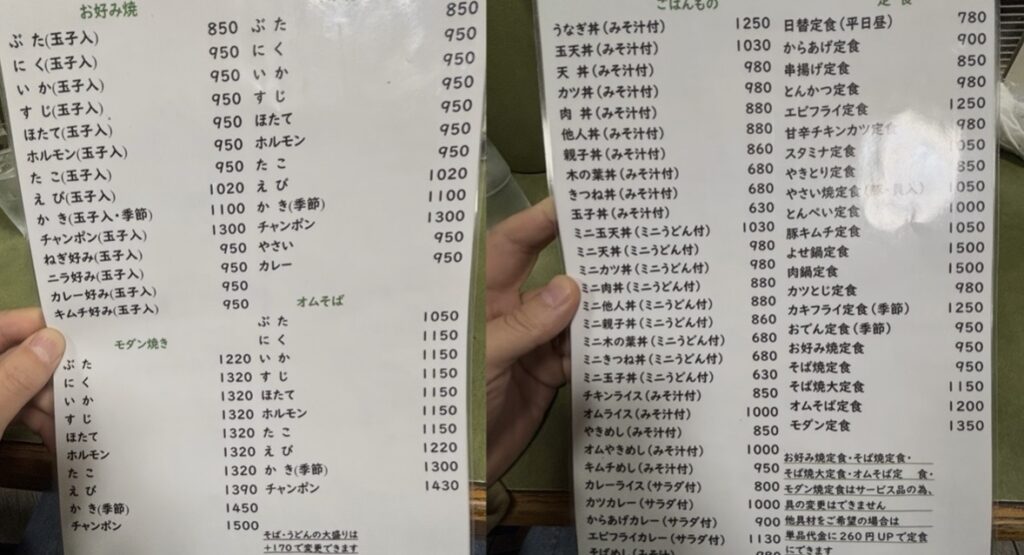 お好み焼
ぶ た(玉子入) 850
にく(玉子入) 950
いか(玉子入) 950
すじ(玉子入) 950
ほたて(玉子入) 950
ホルモン(玉子入) 950
た こ(玉子入) 950
え び(玉子入) 1020
か き(玉子入・季節) 1100
チャンポン(玉子入) 1300
ねぎ好み(玉子入) 950
ニラ好み(玉子入) 950
カレー好み(玉子入) 950
キムチ好み(玉子入) 950
モダン焼き
ぶ た 1220
に く 1320
い か 1320
す じ 1320
ほたて 1320
ホルモン 1320
た こ 1320
え び 1390
か き(季節) 1450
チャンポン 1500
ぶ た 850
に く 950
い か 950
す じ 950
ほたて 950
ホルモン 950
た こ 950
え び 1020
か き(季節) 1100
チャンポン 1300
やさい 950
カレー 950
オムそば
ぶ た 1050
に く 1150
い か 1150
す じ 1150
ほたて 1150
ホルモン 1150
た こ 1150
え び 1220
か き(季節) 1300
チャンポン 1430
そば・うどんの大盛りは
+170で変更できます
ごはんもの
うなぎ丼(みそ汁付) 1250
玉天丼(みそ汁付) 1030
天 丼(みそ汁付) 980
カツ丼(みそ汁付) 980
肉 丼(みそ汁付) 880
他人丼(みそ汁付) 880
親子丼(みそ汁付) 860
木の葉丼(みそ汁付) 680
きつね丼(みそ汁付) 680
玉子丼(みそ汁付) 630
ミニ玉天丼(ミニうどん付) 1030
ミニ天丼(ミニうどん付) 980
ミニカツ丼(ミニうどん付) 980
ミニ肉丼(ミニうどん付) 880
ミニ他人丼(ミニうどん付) 880
ミニ親子丼(ミニうどん付) 860
ミニ木の葉丼(ミニうどん付) 680
ミニきつね丼(ミニうどん付) 680
ミニ玉子丼(ミニうどん付) 630
チキンライス(みそ汁付) 850
オムライス(みそ汁付) 1000
やきめし(みそ汁付) 850
オムやきめし(みそ汁付) 1000
キムチめし(みそ汁付) 950
カレーライス(サラダ付) 800
カツカレー(サラダ付) 1000
からあげカレー(サラダ付) 900
エビフライカレー(サラダ付) 1130
定 食
日替定食(平日昼) 780
からあげ定食 900
串揚げ定食 850
とんかつ定食 980
エビフライ定食 1250
甘辛チキンカツ定食 980
スタミナ定食 1050
やきとり定食 850
やさい焼定食 1050
とんぺい定食 1000
豚キムチ定食 1050
よせ鍋定食 1500
肉鍋定食 1500
カツとじ定食 980
カキフライ定食(季節) 1250
おでん定食(季節) 950
お好み焼定食 950
そば焼定食 950
そば焼大定食 1150
オムそば定食 1200
モダン定食 1350
お好み焼定食・そば焼定食・
そば焼大定食・オムそば定 食・
モダン焼定食はサービス品の為、
具の変更はできません
他具材をご希望の場合は
単品代金に260円UPで定食
にできます